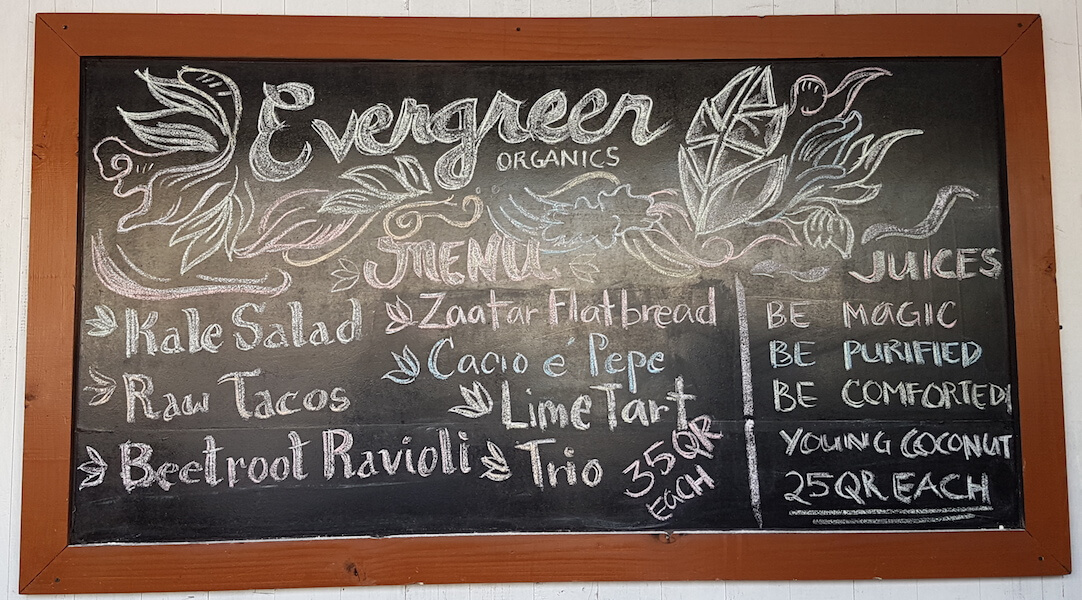 Evergreen
ORGANICS
MENU
Kale Salad
Raw Tacos
Beetroot Ravioli
Zaatar Flatbread
Cacio é Pepe
Lime Tart
Trio
35QR
EACH
JUICES
BE MAGIC
BE PURIFIED
BE COMFORTED
YOUNG COCONUT
25QR EACH